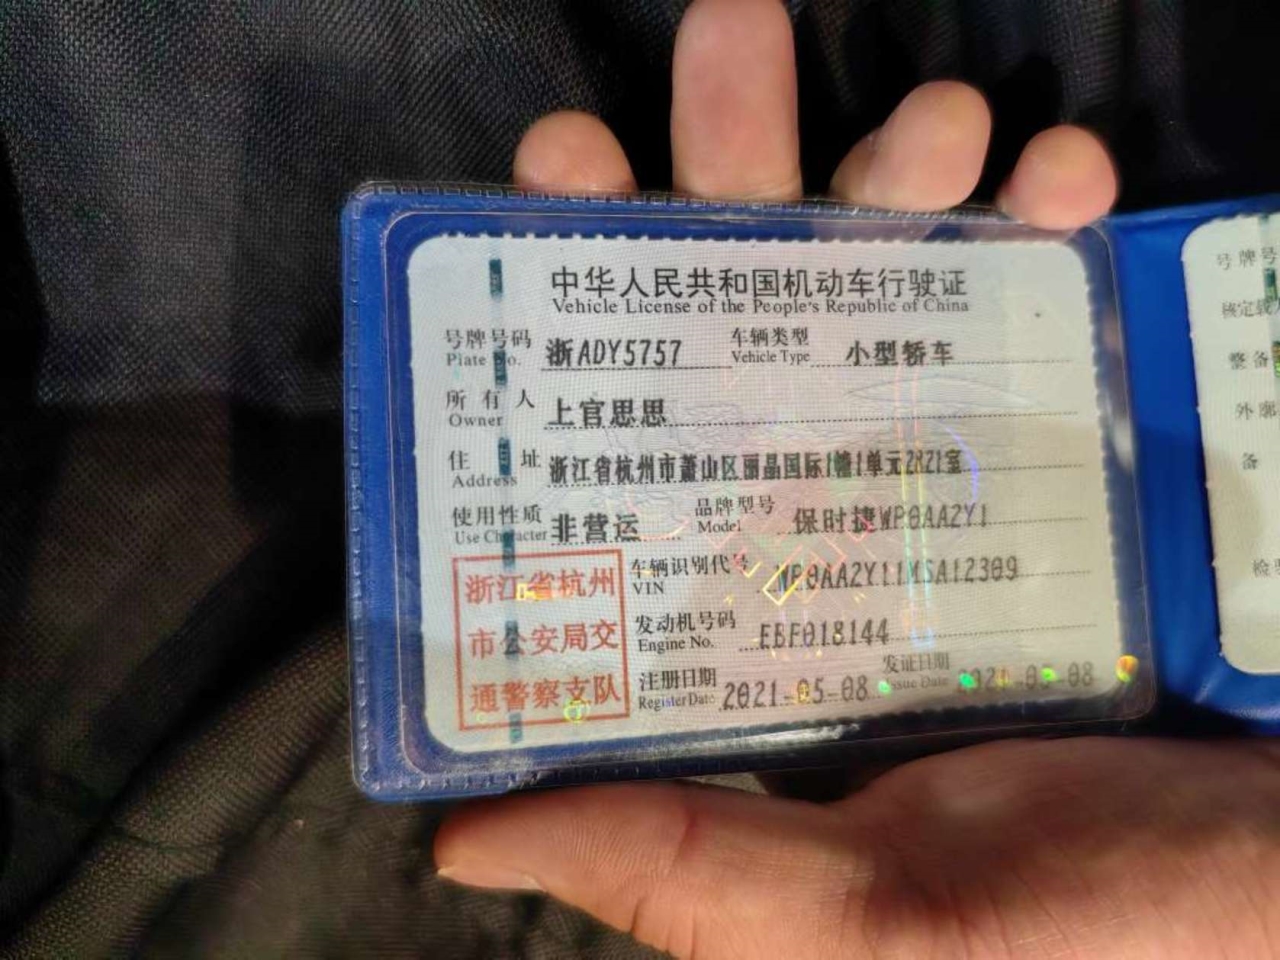 中华人民共和国机动车行驶证
Vehicle License of the People's Republic of China
号牌号码 浙ADY5757 车辆类型 小型轿车
Plate No. Vehicle Type
所有人 上官思思
Owner
住址 浙江省杭州市萧山区丽晶国际1幢1单元2821室
Address
使用性质 非营运 品牌型号 保时捷WP0AA2Y1
Use Character Model
浙江省杭州
市公安局交
通警察支队
车辆识别代号 WP0AA2Y11MSA12309
VIN
发动机号码 EBF018144
Engine No.
注册日期 2021-05-08 发证日期
Register Date Issue Date
号牌号
核定载
整备
外廓
备
检验